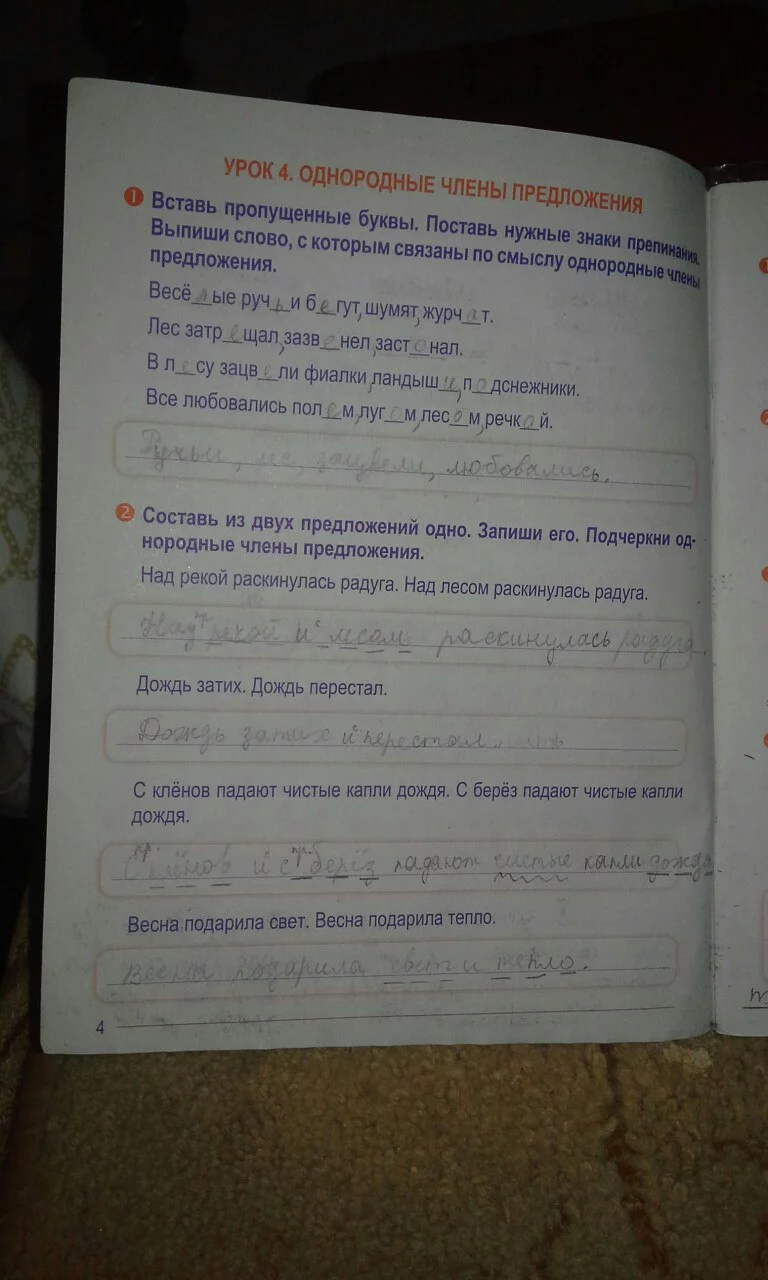 УРОК 4. ОДНОРОДНЫЕ ЧЛЕНЫ ПРЕДЛОЖЕНИЯ
1 Вставь пропущенные буквы. Поставь нужные знаки препинания.
Выпиши слово, с которым связаны по смыслу однородные члены
предложения.
Весё_л_ые руч_ь_и б_е_гут, шумят, журч_а_т.
Лес затр_е_щал, зазв_е_нел, заст_о_нал.
В л_е_су зацв_е_ли фиалки, ландыш_и_, п_о_дснежники.
Все любовались пол_е_м, луг_о_м, лес_о_м, речк_о_й.
Ручьи, лес, зацвели, любовались.
2 Составь из двух предложений одно. Запиши его. Подчеркни од-
нородные члены предложения.
Над рекой раскинулась радуга. Над лесом раскинулась радуга.
Над рекой и лесом раскинулась радуга.
Дождь затих. Дождь перестал.
Дождь затих и перестал.
С клёнов падают чистые капли дождя. С берёз падают чистые капли
дождя.
С клёнов и с берёз падают чистые капли дождя
Весна подарила свет. Весна подарила тепло.
Весна подарила свет и тепло.
4